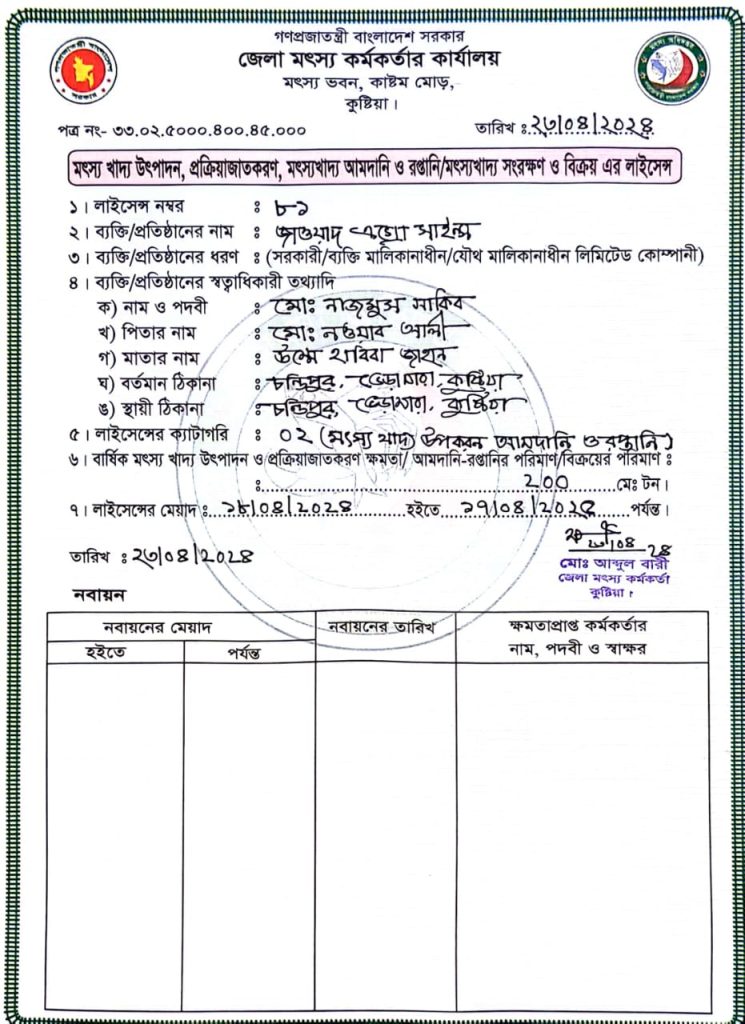 গণপ্রজাতন্ত্রী বাংলাদেশ সরকার
জেলা মৎস্য কর্মকর্তার কার্যালয়
মৎস্য ভবন, কাষ্টম মোড়,
কুষ্টিয়া।
পত্র নং- ৩৩.০২.৫০০০.৪০০.৪৫.০০০ তারিখ ঃ ২৩/০৪/২০২৪
মৎস্য খাদ্য উৎপাদন, প্রক্রিয়াজাতকরণ, মৎস্যখাদ্য আমদানি ও রপ্তানি/মৎস্যখাদ্য সংরক্ষণ ও বিক্রয় এর লাইসেন্স
১। লাইসেন্স নম্বর ঃ ৮১
২। ব্যক্তি/প্রতিষ্ঠানের নাম ঃ জাওয়াদ এগ্রো সাইন্স
৩। ব্যক্তি/প্রতিষ্ঠানের ধরণ ঃ (সরকারী/ব্যক্তি মালিকানাধীন/যৌথ মালিকানাধীন লিমিটেড কোম্পানী)
৪। ব্যক্তি/প্রতিষ্ঠানের স্বত্বাধিকারী তথ্যাদি
ক) নাম ও পদবী ঃ মোঃ নাজমুস সাকিব
খ) পিতার নাম ঃ মোঃ নওয়াব আলী
গ) মাতার নাম ঃ উম্মে হাবিবা জাহান
ঘ) বর্তমান ঠিকানা ঃ চন্ডিপুর, ভেড়ামারা, কুষ্টিয়া
ঙ) স্থায়ী ঠিকানা ঃ চন্ডিপুর, ভেড়ামারা, কুষ্টিয়া
৫। লাইসেন্সের ক্যাটাগরি ঃ ০২ (মৎস্য খাদ্য উপকরন আমদানি ও রপ্তানি)
৬। বার্ষিক মৎস্য খাদ্য উৎপাদন ও প্রক্রিয়াজাতকরণ ক্ষমতা/ আমদানি-রপ্তানির পরিমাণ/বিক্রয়ের পরিমাণ ঃ
ঃ ২০০ মেঃ টন।
৭। লাইসেন্সের মেয়াদ ঃ ১৮/০৪/২০২৪ হইতে ১৭/০৪/২০২৫ পর্যন্ত।
তারিখ ঃ ২৩/০৪/২০২৪
২৩/০৪ ২৪
মোঃ আব্দুল বারী
জেলা মৎস্য কর্মকর্তা
কুষ্টিয়া।
নবায়ন
নবায়নের মেয়াদ নবায়নের তারিখ ক্ষমতাপ্রাপ্ত কর্মকর্তার
হইতে পর্যন্ত নাম, পদবী ও স্বাক্ষর